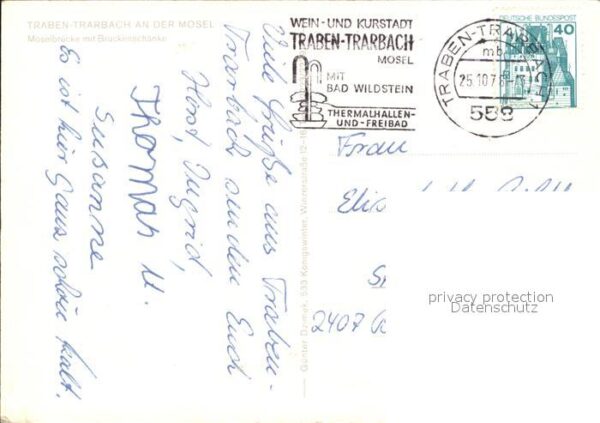 TRABEN-TRARBACH AN DER MOSEL
Moselbrücke mit Brückenschänke
Viele Grüße aus Traben-
Trarbach senden Euch
Horst, Ingrid,
Thomas u.
Susanne
Es ist hier Ganz schön kalt.
Günter Dzimek, 533 Königswinter, Winzerstraße
WEIN- UND KURSTADT
TRABEN-TRARBACH
MOSEL
MIT
BAD WILDSTEIN
THERMALHALLEN-
UND-FREIBAD
TRABEN-TRARBACH
mb
25.10.78
558
DEUTSCHE BUNDESPOST
40
Frau
2407
privacy protection
Datenschutz